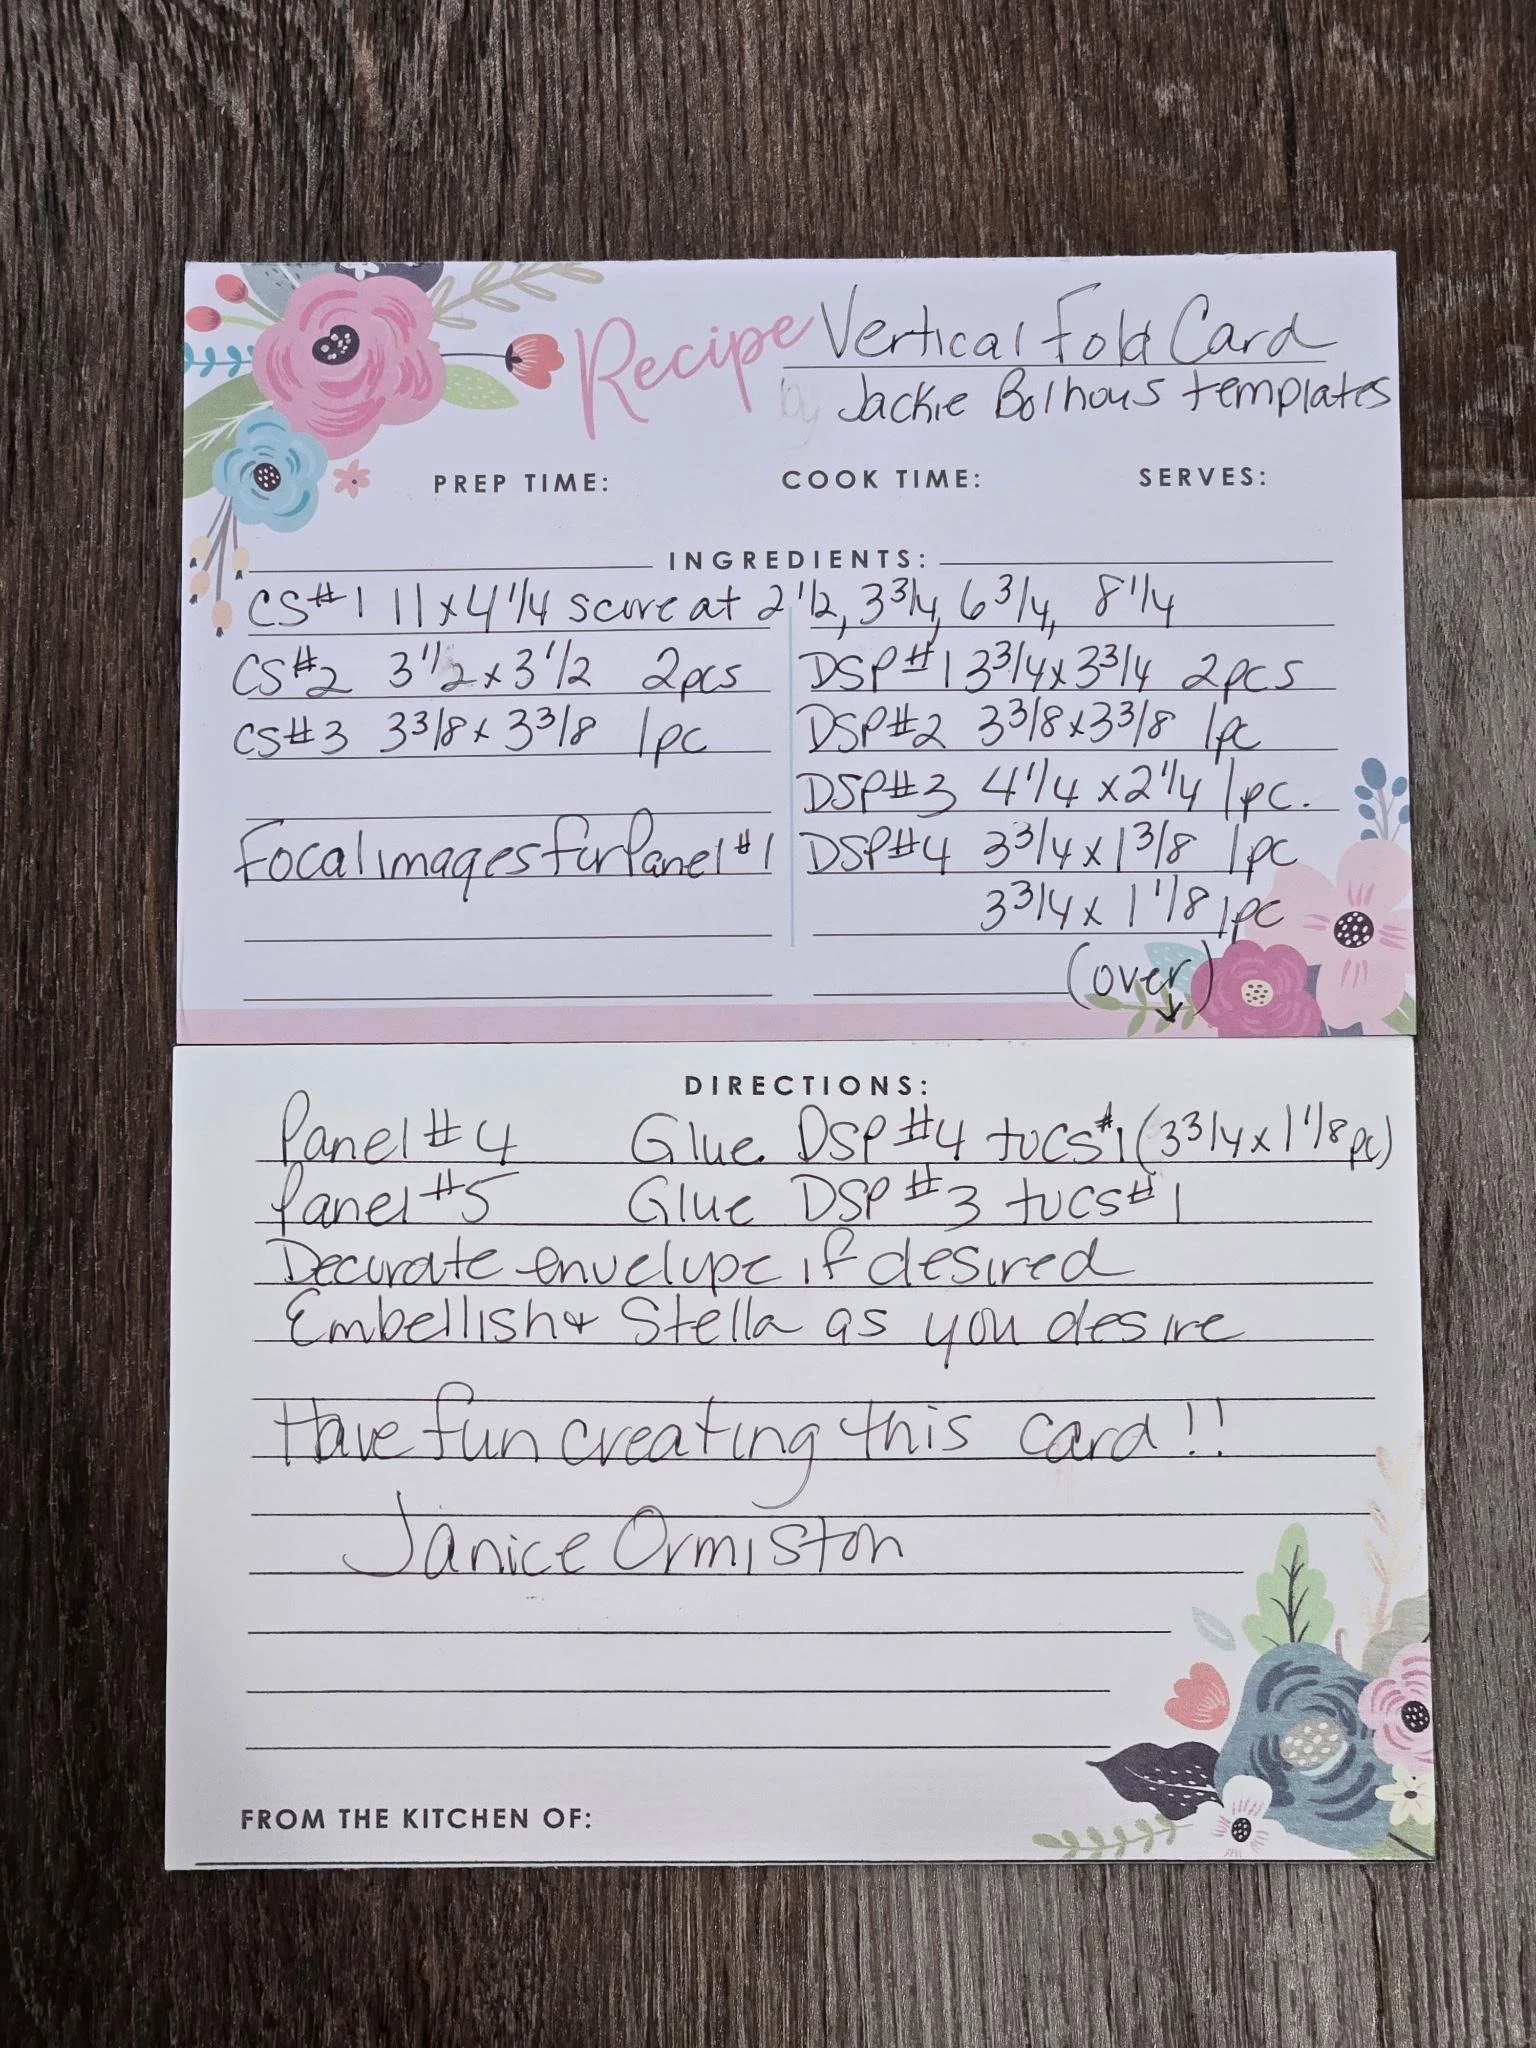 Recipe Vertical Fold Card
by Jackie Bolhous templates
PREP TIME: COOK TIME: SERVES:
INGREDIENTS:
CS#1 11x4 1/4 score at 2 1/2, 3 3/4, 6 3/4, 8 1/4
CS#2 3 1/2 x 3 1/2 2pcs
CS#3 3 3/8 x 3 3/8 1pc
Focal images for Panel #1
DSP#1 3 3/4 x 3 3/4 2pcs
DSP#2 3 3/8 x 3 3/8 1pc
DSP#3 4 1/4 x 2 1/4 1pc.
DSP#4 3 3/4 x 1 3/8 1pc
3 3/4 x 1 1/8 1pc
(over)
DIRECTIONS:
Panel #4 Glue DSP #4 to CS#1 (3 3/4 x 1 1/8 pc)
Panel #5 Glue DSP #3 to CS#1
Decorate envelope if desired
Embellish & Stella as you desire
Have fun creating this card!!
Janice Ormiston
FROM THE KITCHEN OF: